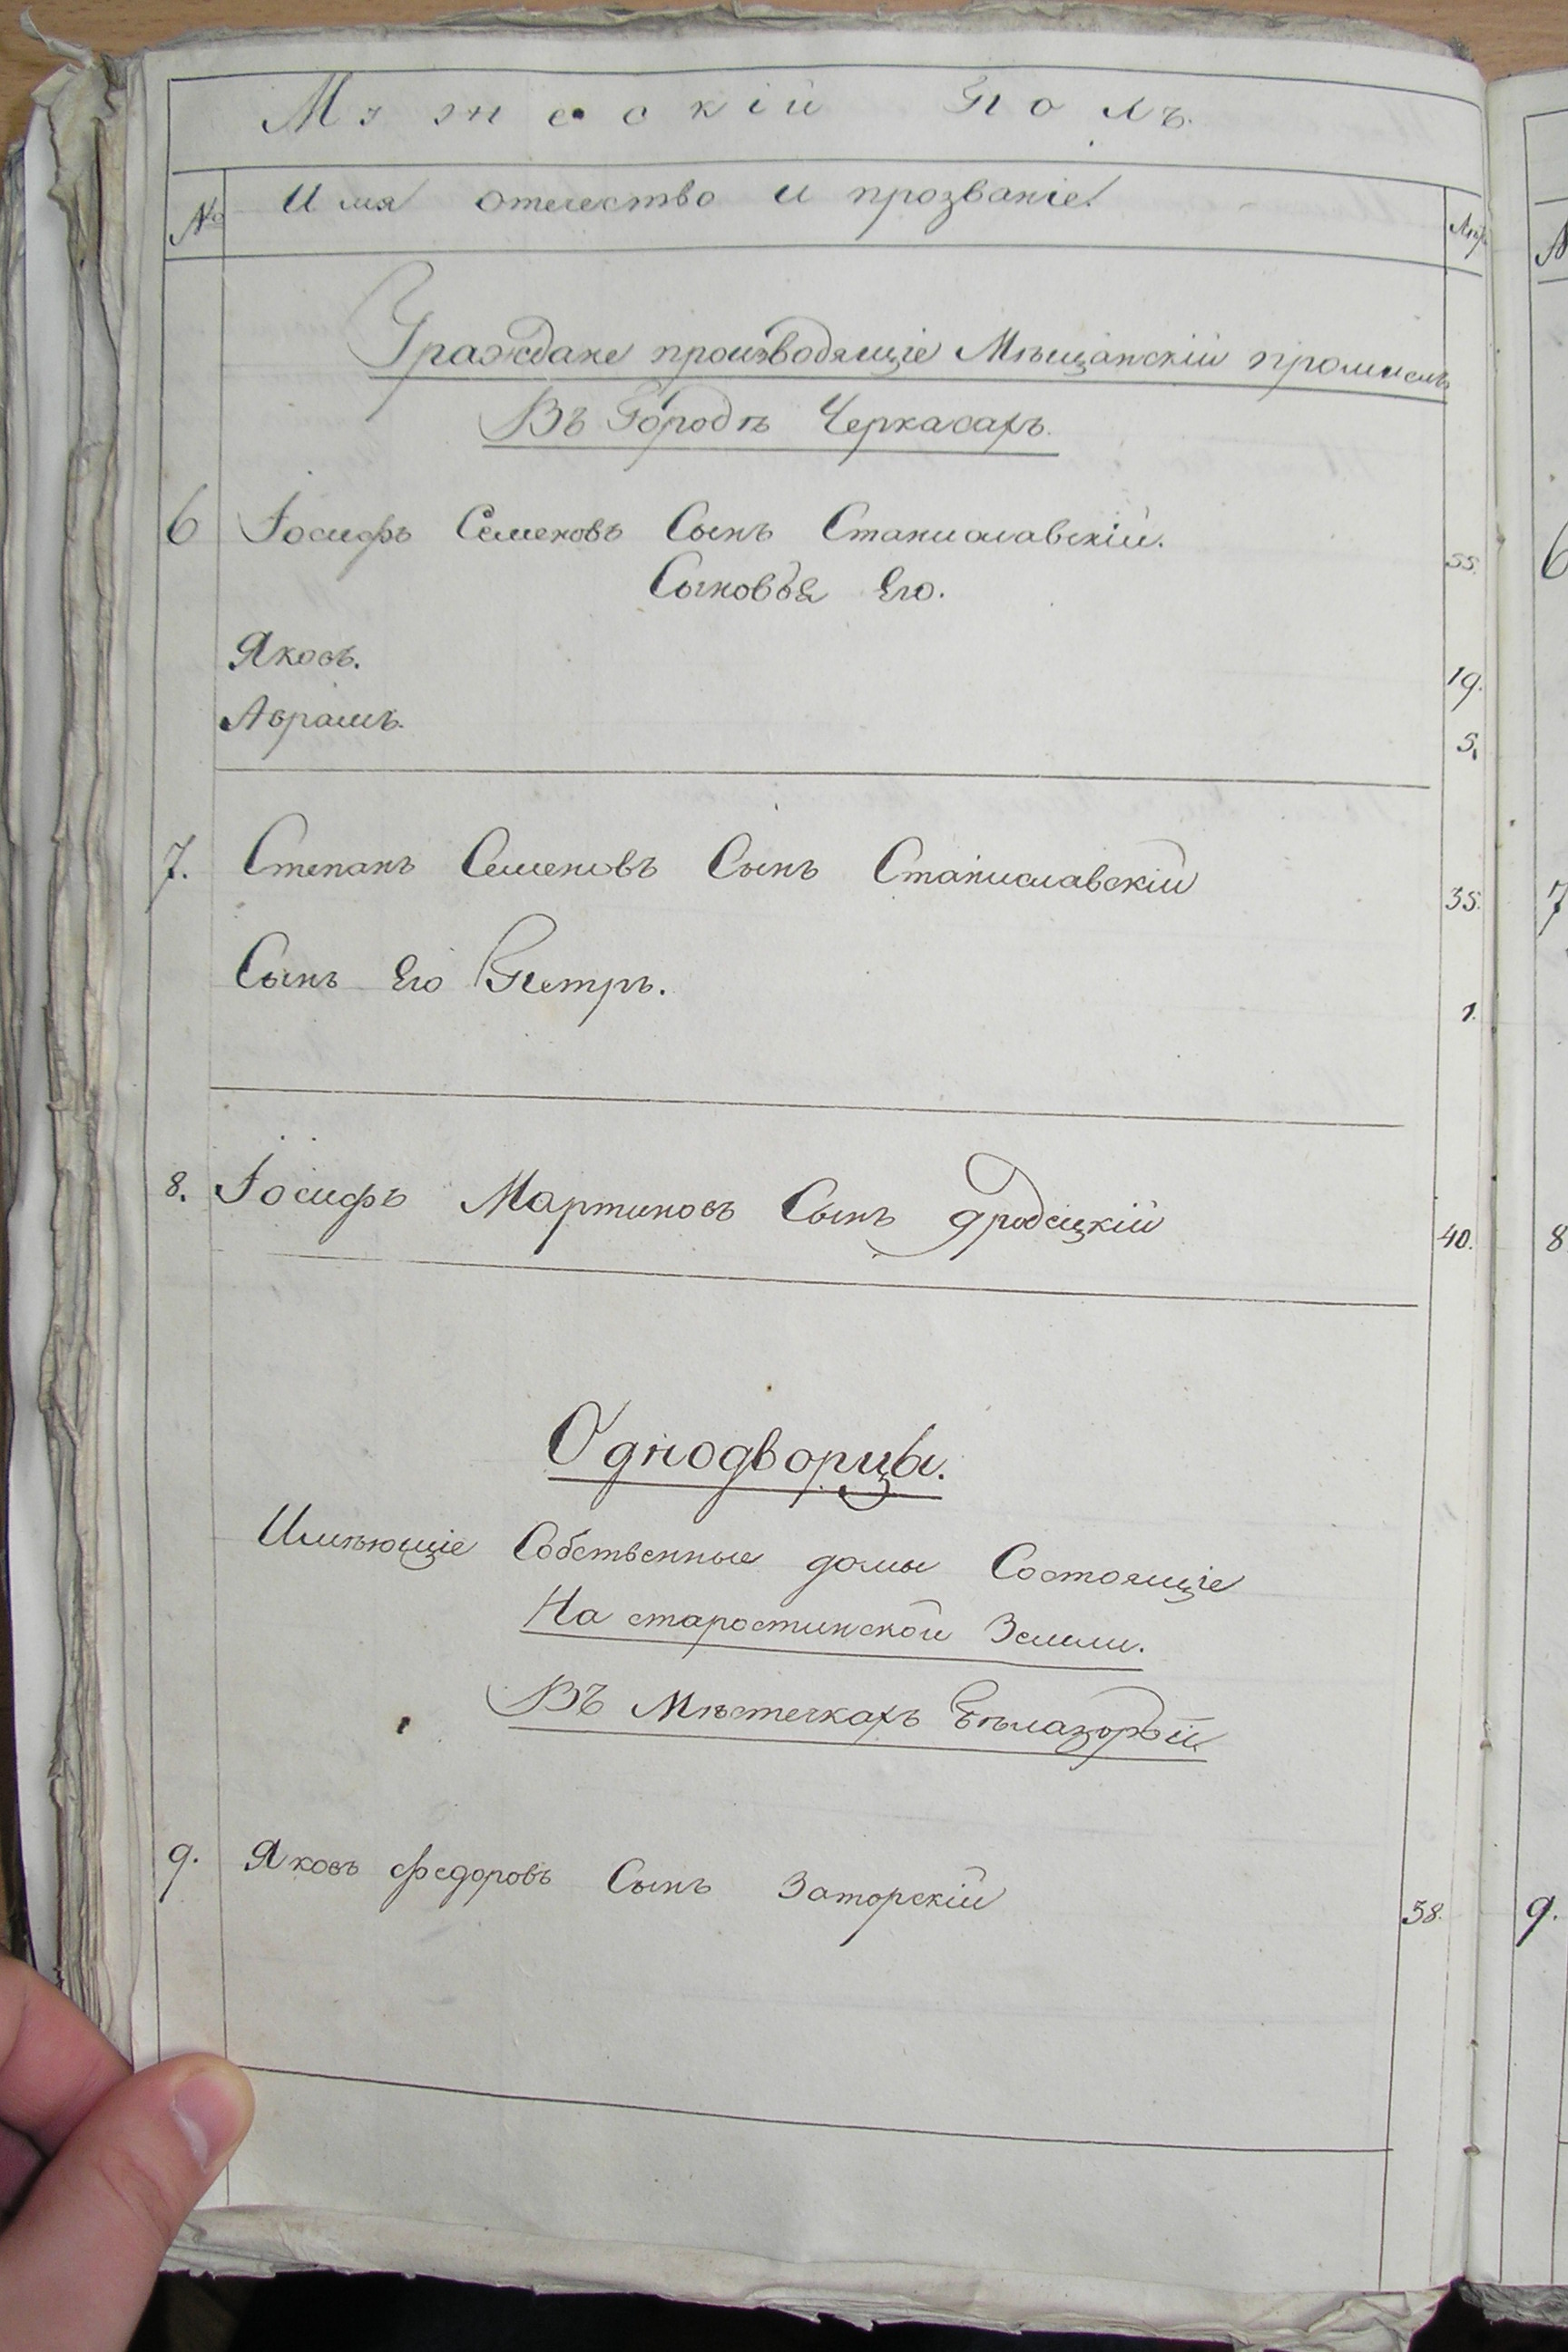 Мужескій Полъ.
№ Имя отечество и прозваніе. Лѣта
Граждане производящіе Мѣщанскій промыслъ
Въ Городѣ Черкасахъ.
6 Іосифъ Семеновъ Сынъ Станиславскій. 55.
Сыновья Его.
Яковъ. 19.
Аврамъ. 5.
7. Степанъ Семеновъ Сынъ Станиславскій 35.
Сынъ Его Петръ. 1.
8. Іосифъ Мартиновъ Сынъ Гродецкій 40.
Однодворцы.
Имѣющіе Собственные домы Состоящіе
На старостинской Земли.
Въ Мѣстечкахъ
9. Яковъ Федоровъ Сынъ Заторскій 58.
6
7
8
9.